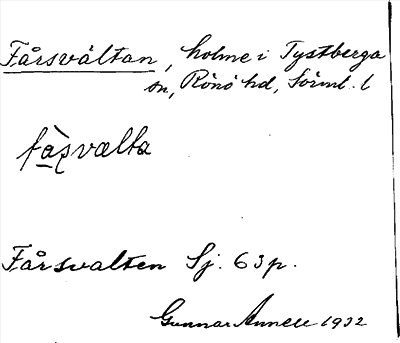 Fårsvältan, holme i Tystberga
sn, Rönö hd, Sörml. l
Fårsvalten Sj. 63 p.
Gunnar Annell 1932